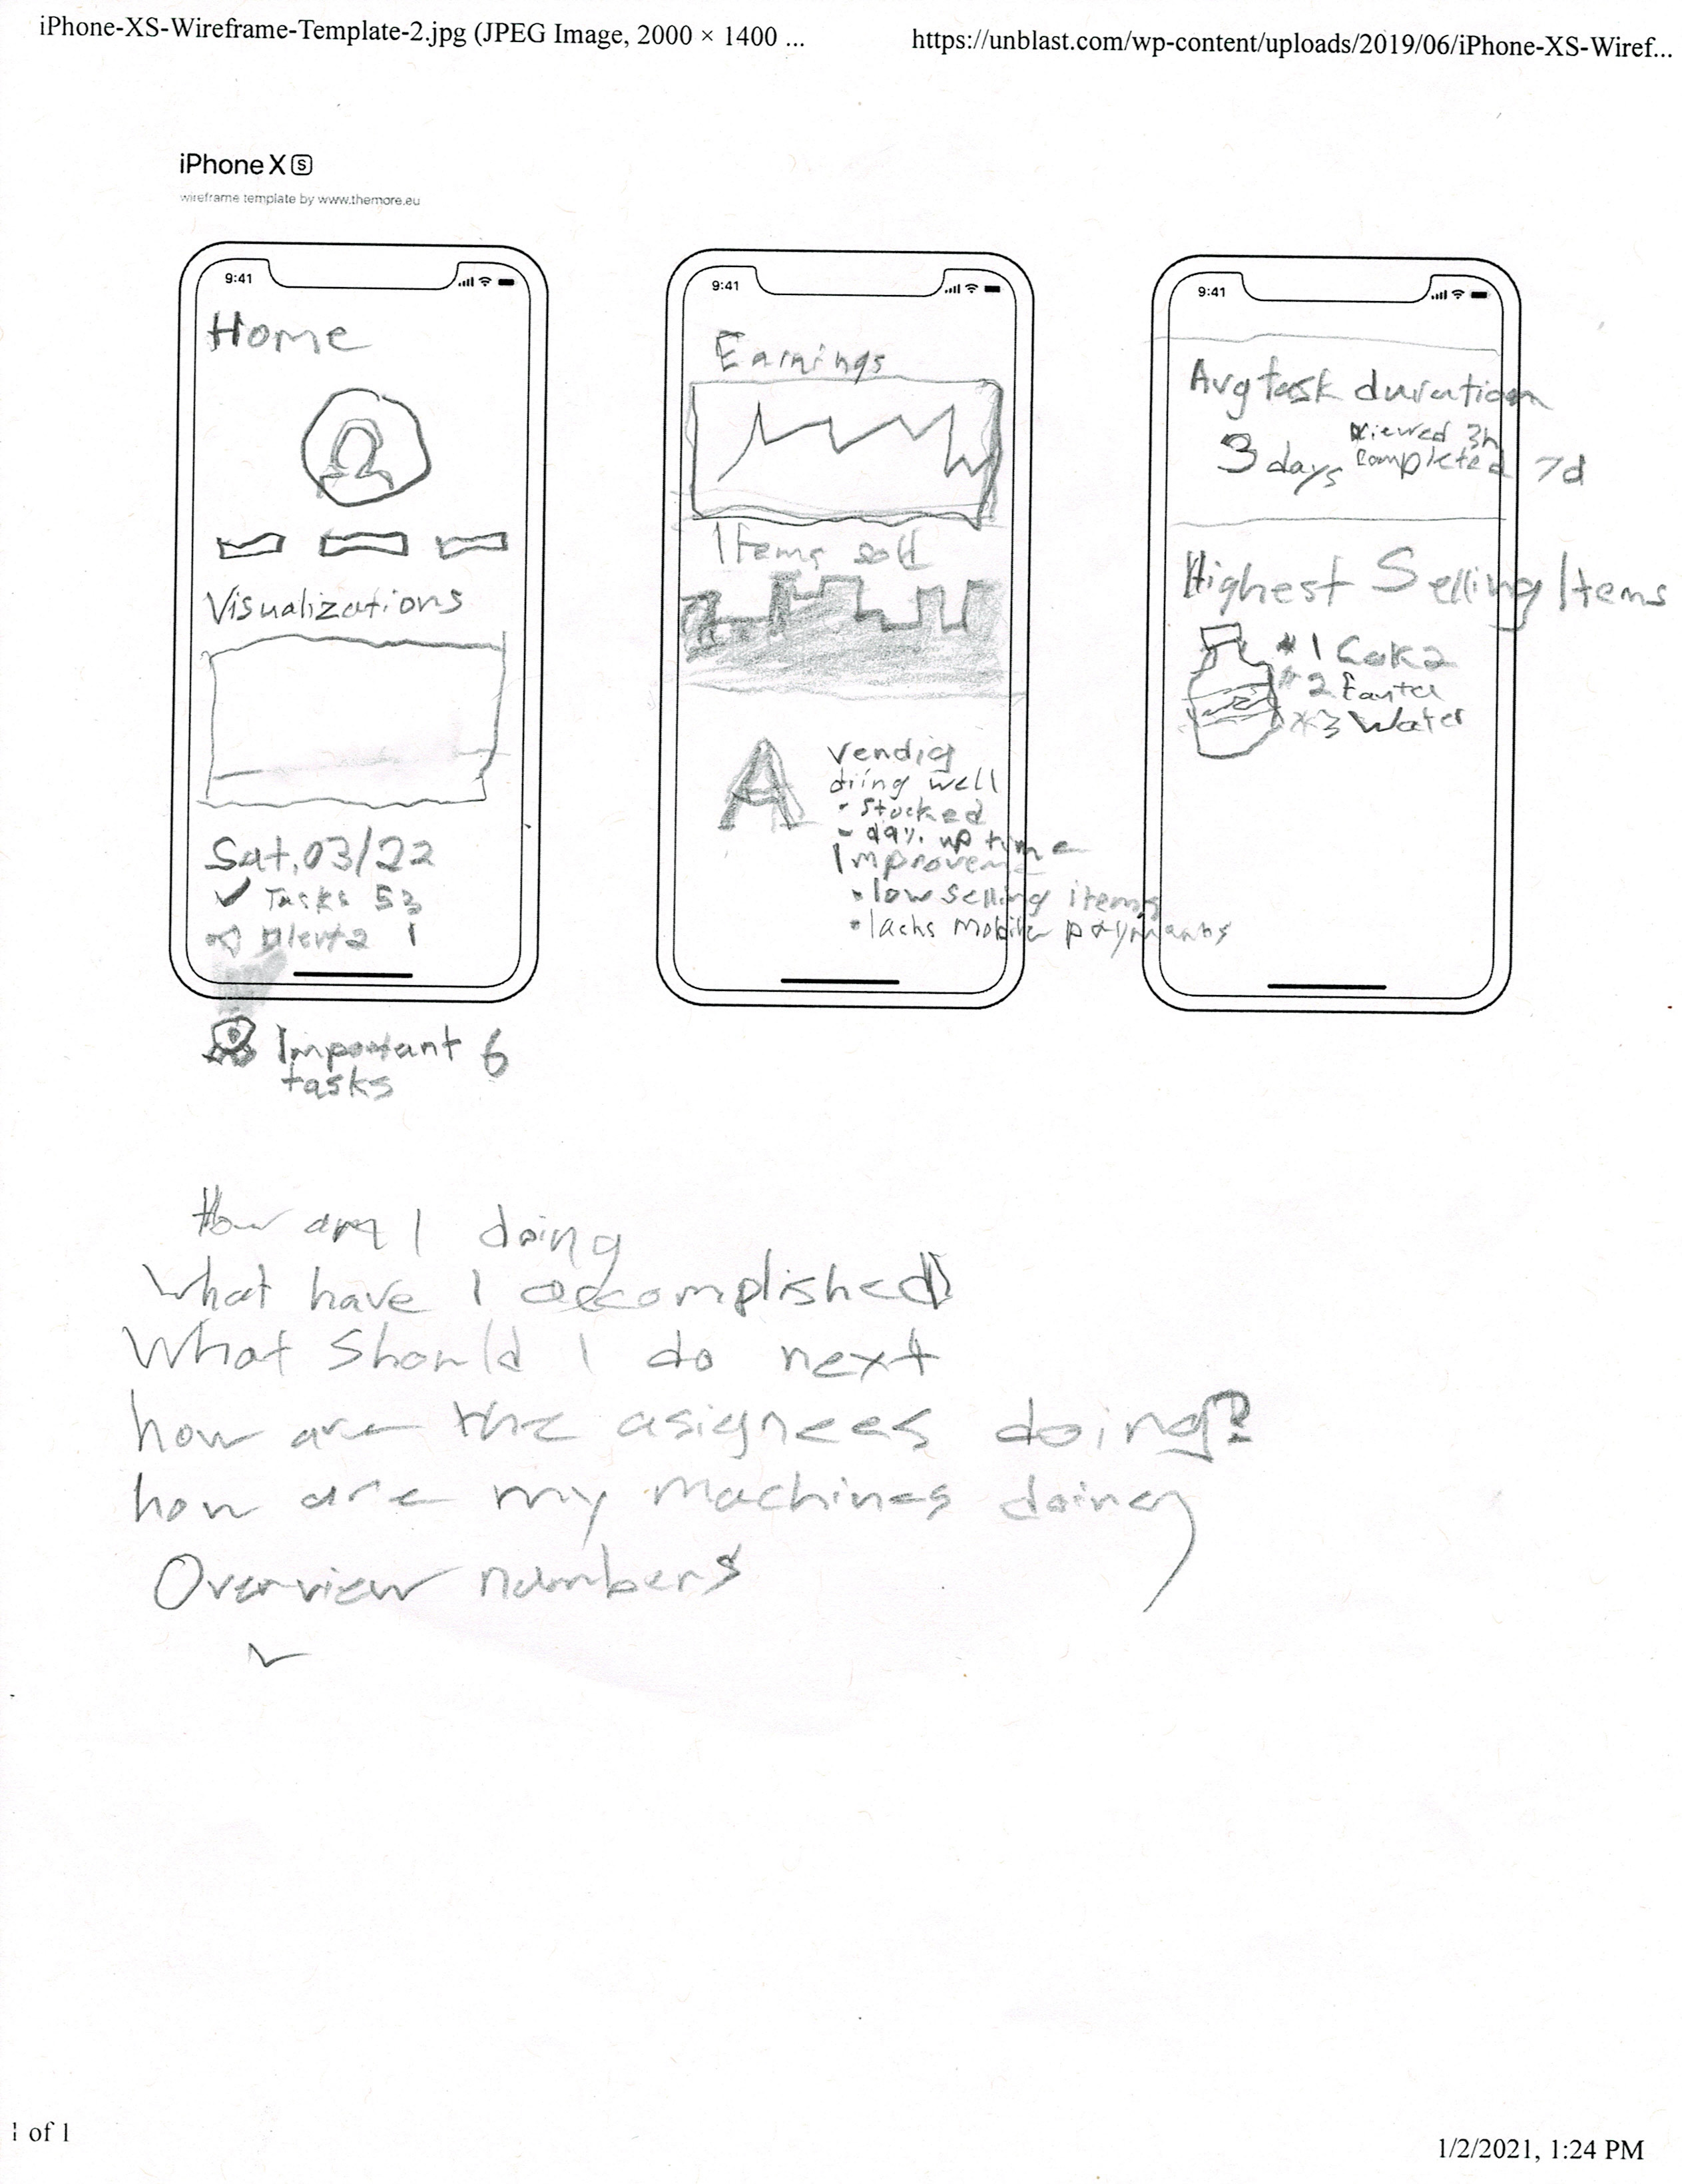 iPhone-XS-Wireframe-Template-2.jpg (JPEG Image, 2000 × 1400 ...
https://unblast.com/wp-content/uploads/2019/06/iPhone-XS-Wiref...
iPhone X S
wireframe template by www.themore.eu
9:41
Home
Visualizations
Sat, 03/22
Tasks 53
1
Important 6
tasks
9:41
Earnings
Items sold
A
Vendig
diing well
• Stocked
up time
Improvem
• low selling items
• lacks
9:41
Avg task duration
3 days
viewed 3h
completed 7d
Highest Selling Items
#1
#2
#3 Water
How am I doing
What have I accomplished
What should I do next
how are the asignees doing?
how are my machines doing
Overview numbers
1 of 1
1/2/2021, 1:24 PM